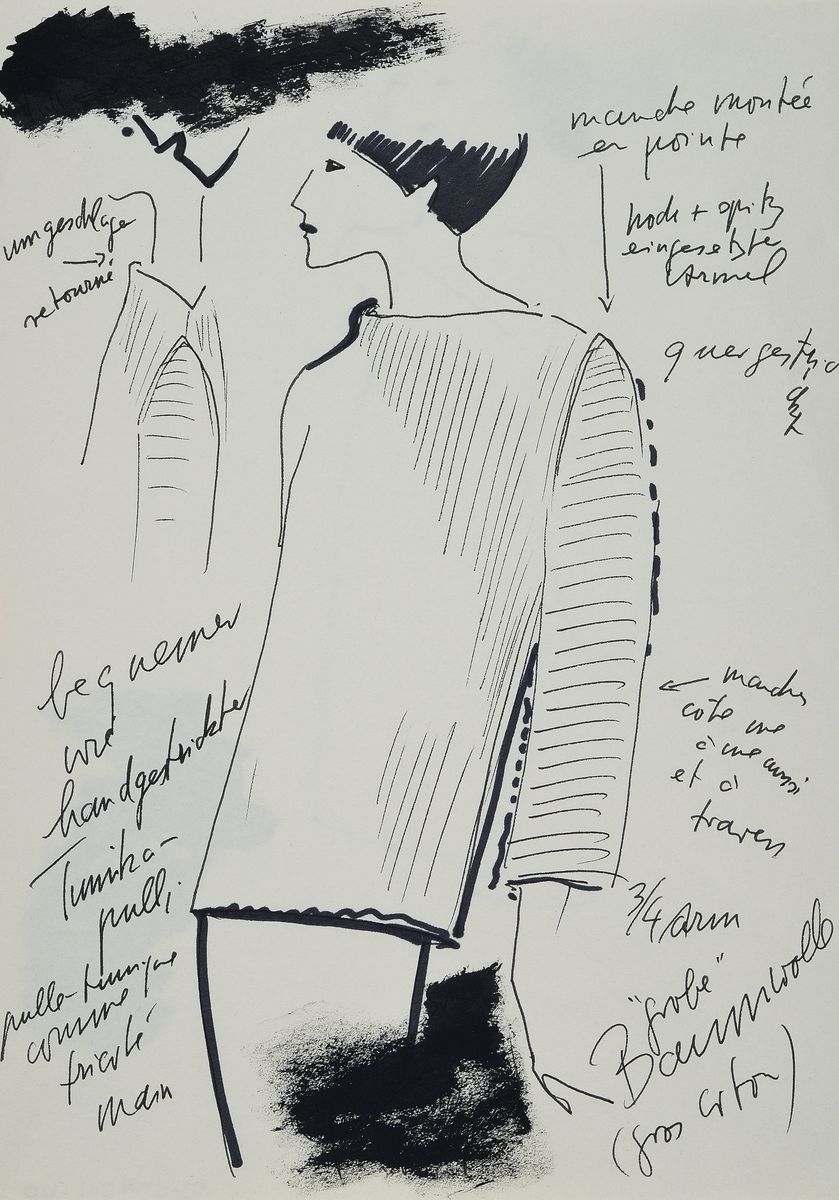 manche montée
en pointe
hoch + spitz
eingesetzter
Ärmel
umgeschlagen
retourné
quergestrickt
bequemer
wie
handgestrickter
Tunika-
pulli
pulle-tunique
comme
tricoté
main
manches
côte une
à une aussi
et à
travers
3/4 Arm
"grobe"
Baumwolle
(gros coton)